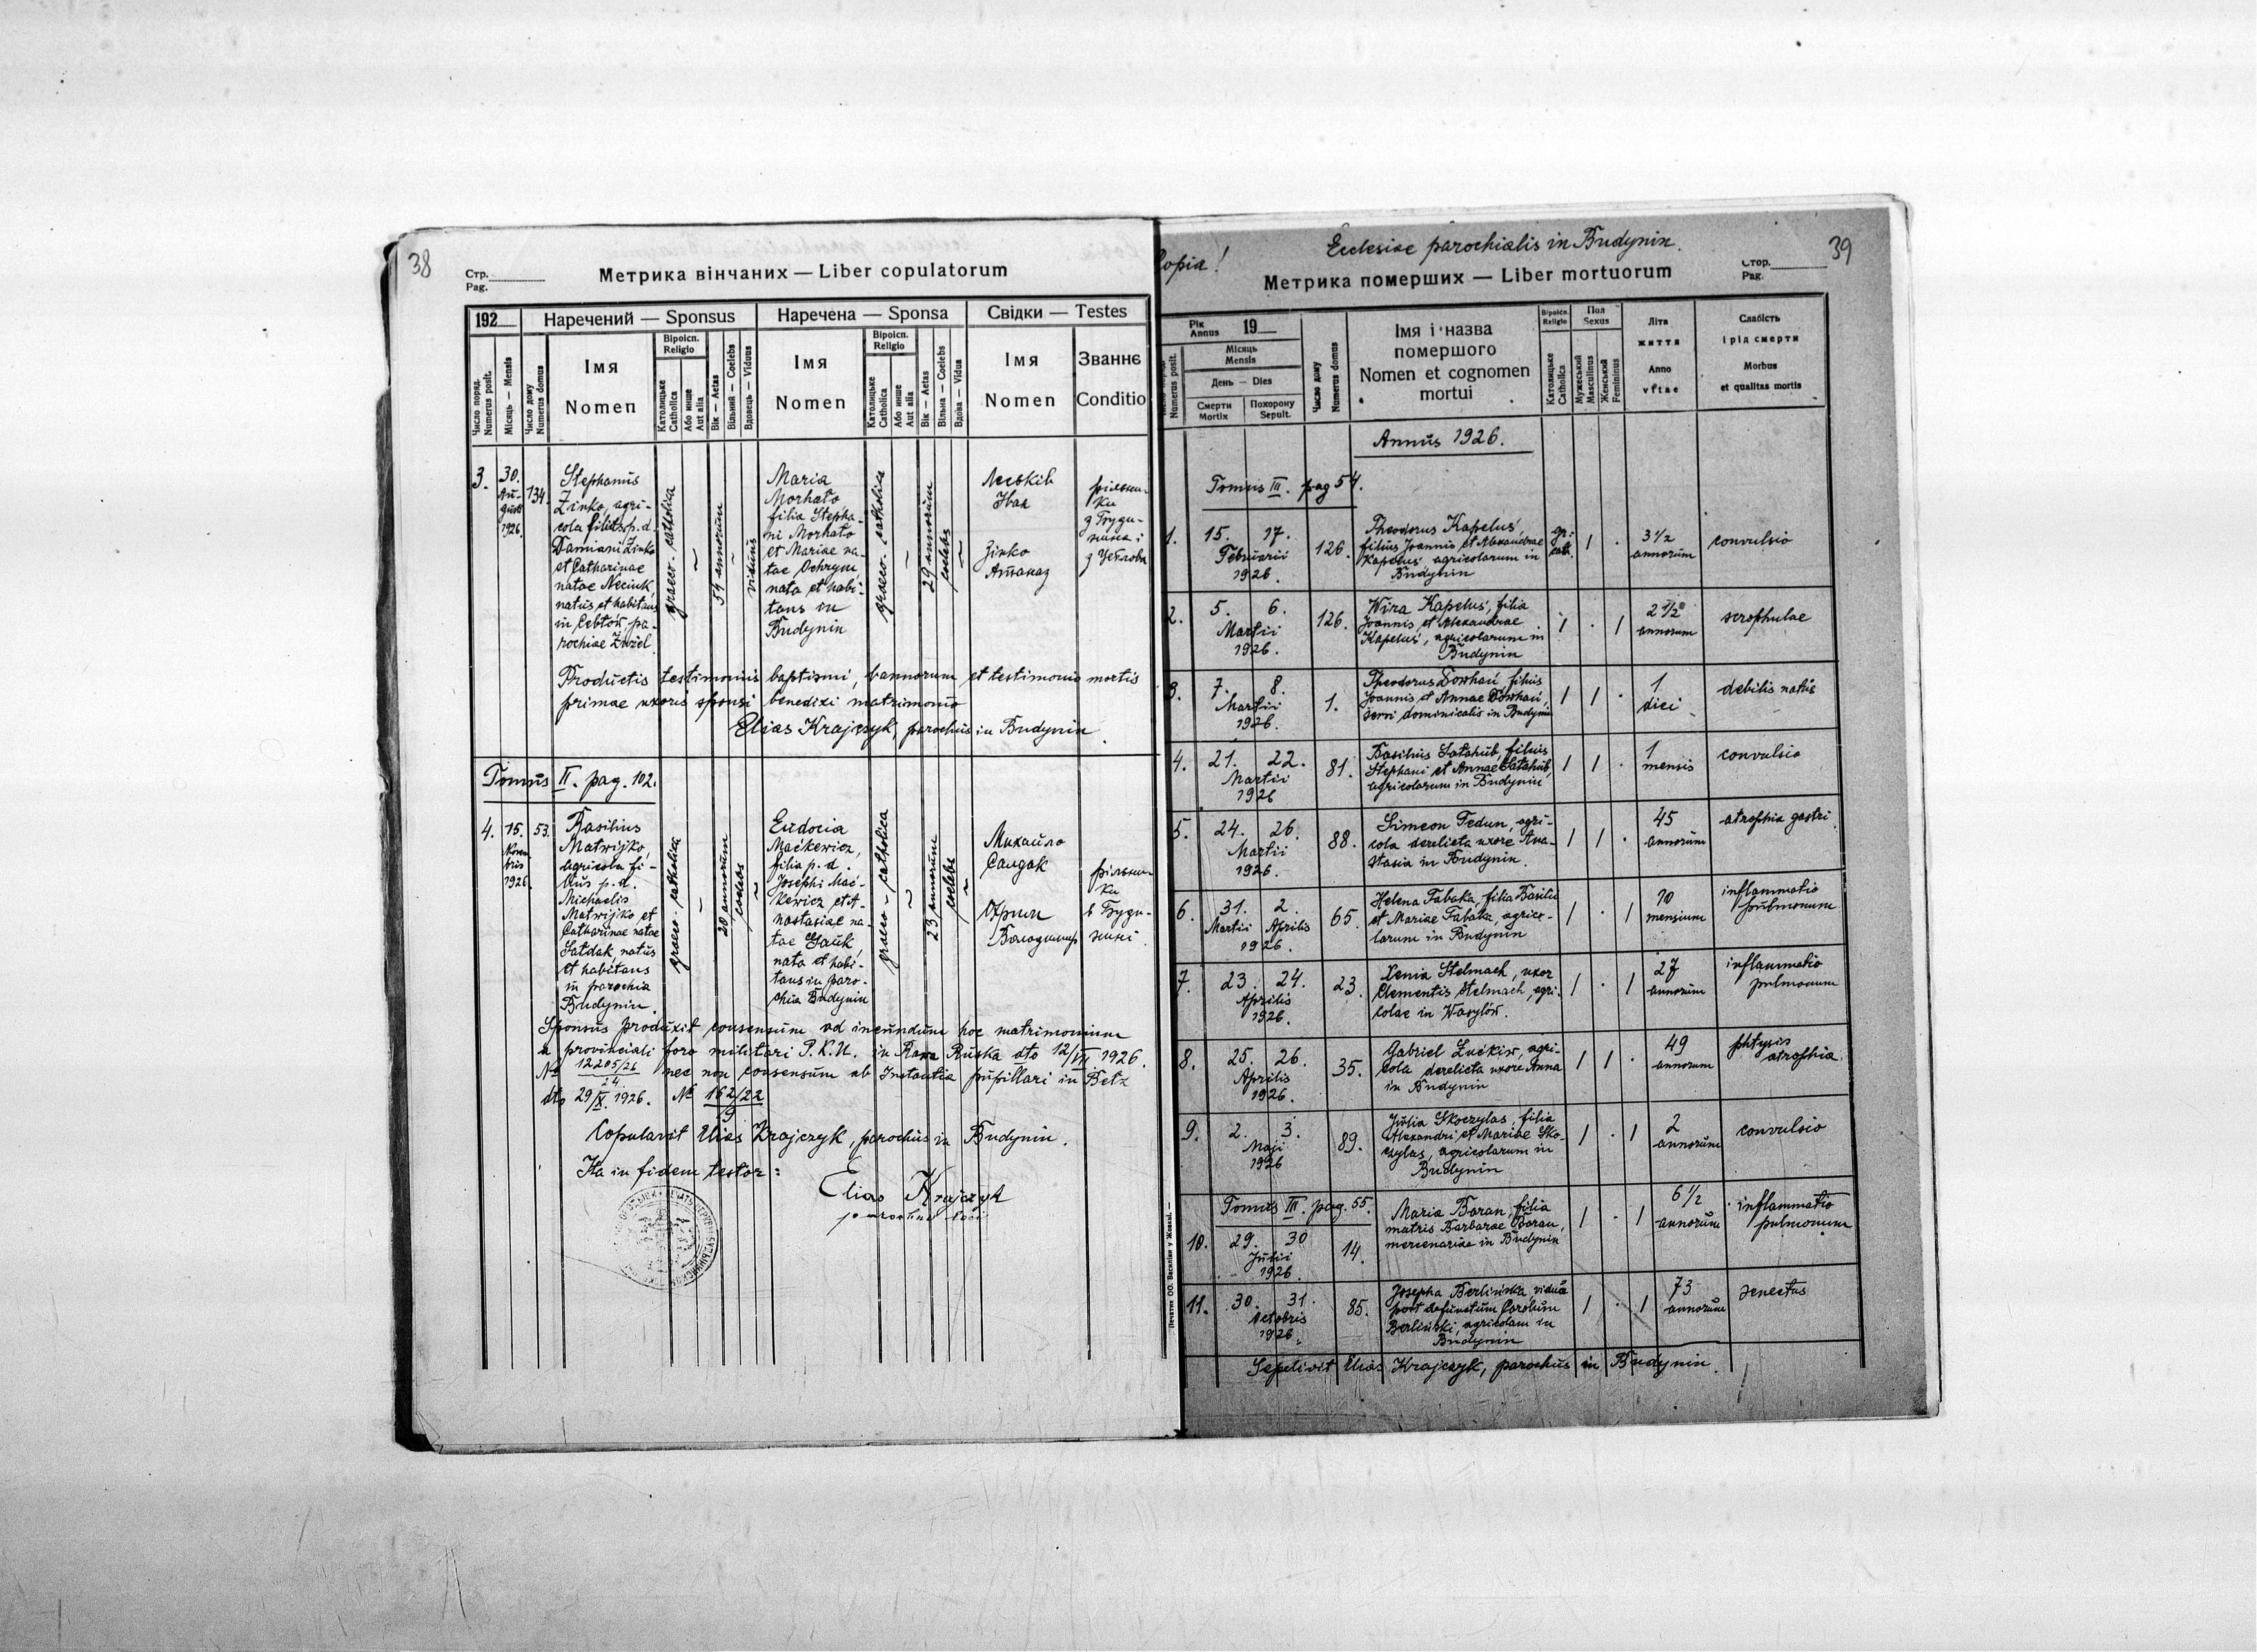 38
Стр.
Pag.
Метрика вінчаних — Liber copulatorum
192
Наречений — Sponsus
Наречена — Sponsa
Свідки — Testes
Число поряд.
Numerus posit.
Місяць — Mensis
Число дому
Numerus domus
Імя
Nomen
Віроісп.
Religio
Католицьке
Catholica
Або инше
Aut alia
Вік — Aetas
Вільний — Coelebs
Вдовець — Viduus
Імя
Nomen
Віроісп.
Religio
Католицьке
Catholica
Або инше
Aut alia
Вік — Aetas
Вільна — Coelebs
Вдова — Vidua
Імя
Nomen
Званнє
Conditio
3.
30.
Au-
gusti
1926.
134.
Stephanus
Zinko, agri-
cola filius p. d.
Damiani Zinko
et Catharinae
natae Neciuk,
natus et habitans
in Cebłów, pa-
rochiae Żużel
graeco-catholica
54 annorum
viduus
Maria
Morhato
filia Stepha-
ni Morhato
et Mariae na-
tae Ochrym,
nata et habi-
tans in
Budynin
graeco-catholica
29 annorum
coelebs
Леськів
Іван
Зінко
Атаназ
рільни-
ки
з Буди-
нина і
з Цеблова
Productis testimoniis baptismi, bannorum et testimonio mortis
primae uxoris sponsi benedixi matrimonio
Elias Krajczyk, parochus in Budynin.
Tomus II. pag. 102.
4.
15.
Novem-
bris
1926.
53.
Basilius
Matwijko,
agricola fi-
lius p. d.
Michaelis
Matwijko et
Catharinae natae
Sałdak, natus
et habitans
in parochia
Budynin.
graeco-catholica
20 annorum
coelebs
Eudocia
Maćkewicz,
filia p. d.
Josephi Mać-
kewicz et A-
nastasiae na-
tae Hauk,
nata et habi-
tans in paro-
chia Budynin
graeco-catholica
23 annorum
coelebs
Михайло
Салдак
Охрим
Володимир
рільни-
ки
в Буди-
нині.
Sponsus produxit consensum ad ineundum hoc matrimonium
a provinciali foro militari P.K.U. in Rawa Ruska dto 12/VII 1926.
No 12205/26 nec non consensum ab Instantia pupillari in Bełz
24.
dto 29/X. 1926. No 162/22
9
Copulavit Elias Krajczyk, parochus in Budynin.
Ita in fidem testor:
Elias Krajczyk
parochus loci
Copia!
Ecclesiae parochialis in Budynin.
39
Метрика померших — Liber mortuorum
Стор.
Pag.
Рік
Annus 19
Numerus posit.
Місяць
Mensis
День — Dies
Смерти
Mortix
Похорону
Sepult.
Число дому
Numerus domus
Імя і назва
помершого
Nomen et cognomen
mortui
Віроісп.
Religio
Католицьке
Catholica
Пол
Sexus
Мужеський
Masculinus
Женський
Femininus
Літа
життя
Anno
vitae
Слабість
і рід смерти
Morbus
et qualitas mortis
Annus 1926.
Tomus III. pag 54.
1.
15. 17.
Februarii
1926.
126.
Theodorus Kapeluś,
filius Joannis et Alexandrae
Kapeluś agricolarum in
Budynin
gr.
cath.
1 .
3 1/2
annorum
convulsio
2.
5. 6.
Martii
1926.
126.
Wira Kapeluś, filia
Joannis et Alexandrae
Kapeluś, agricolarum in
Budynin
1 . 1
2 1/2
annorum
scrophulae
3.
7. 8.
Martii
1926.
1.
Joannis et Annae
servi dominicalis in Budynin
1 1 .
1
diei
debilis natus
4.
21. 22.
Martii
1926
81.
Basilius Sałahub, filius
Stephani et Annae Sałahub,
agricolarum in Budynin
1 1 .
1
mensis
convulsio
5.
24. 26.
Martii
1926.
88.
Simeon Fedun, agri-
cola derelicta uxore Ana-
stasia in Budynin.
1 1 .
45
annorum
atrophia gastri.
6.
31. 2.
Martii Aprilis
1926.
65.
Helena Tabaka, filia Basilii
et Mariae Tabaka, agrico-
larum in Budynin
1 . 1
10
mensium
inflammatio
pulmonum
7.
23. 24.
Aprilis
1926.
23.
Xenia Stelmach, uxor
Clementis Stelmach, agri-
colae in Wasylów.
1 . 1
27
annorum
inflammatio
pulmonum
8.
25. 26.
Aprilis
1926.
35.
Gabriel Łućkiw, agri-
cola derelicta uxore Anna
in Budynin
1 1 .
49
annorum
phtysis
atrophia.
9.
2. 3.
Maji
1926
89.
Julia Skoczylas, filia
Alexandri et Mariae Sko-
czylas, agricolarum in
Budynin
1 . 1
2
annorum
convulsio
Tomus III. pag. 55.
10.
29. 30
Julii
1926.
14.
Maria Baran, filia
matris Barbarae Baran,
mercenariae in Budynin
1 . 1
6 1/2
annorum
inflammatio
pulmonum
11.
30. 31.
Octobris
1926.
85.
Josepha Berlińska, vidua
post defunctum Carolum
Berliński, agricolam in
Budynin
1 . 1
73
annorum
senectus
Sepelivit Elias Krajczyk, parochus in Budynin.
Печатня ОО. Василіян у Жовкві.